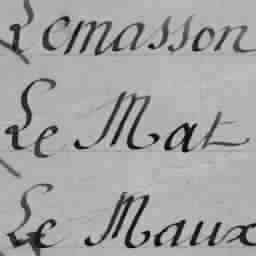 Lemasson
Le Mat
Le Maux